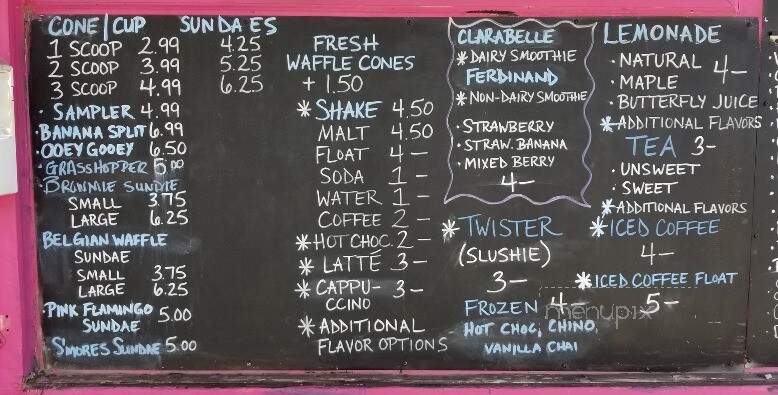 CONE/CUP SUNDAES
1 SCOOP 2.99 4.25
2 SCOOP 3.99 5.25
3 SCOOP 4.99 6.25
· SAMPLER 4.99
· BANANA SPLIT 6.99
· OOEY GOOEY 6.50
· GRASSHOPPER 5.00
BROWNIE SUNDIE
SMALL 3.75
LARGE 6.25
BELGIAN WAFFLE
SUNDAE
SMALL 3.75
LARGE 6.25
· PINK FLAMINGO
SUNDAE 5.00
S'MORES SUNDAE 5.00
FRESH
WAFFLE CONES
+ 1.50
* SHAKE 4.50
MALT 4.50
FLOAT 4-
SODA 1-
WATER 1-
COFFEE 2-
* HOT CHOC. 2-
* LATTE 3-
* CAPPU- 3-
CCINO
* ADDITIONAL
FLAVOR OPTIONS
CLARABELLE
* DAIRY SMOOTHIE
FERDINAND
* NON-DAIRY SMOOTHIE
· STRAWBERRY
· STRAW. BANANA
· MIXED BERRY
4-
* TWISTER
(SLUSHIE)
3-
FROZEN 4-
HOT CHOC, CHINO,
VANILLA CHAI
LEMONADE
· NATURAL 4-
· MAPLE
· BUTTERFLY JUICE
* ADDITIONAL FLAVORS
TEA 3-
· UNSWEET
· SWEET
* ADDITIONAL FLAVORS
* ICED COFFEE
4-
* ICED COFFEE FLOAT
5-
menupix